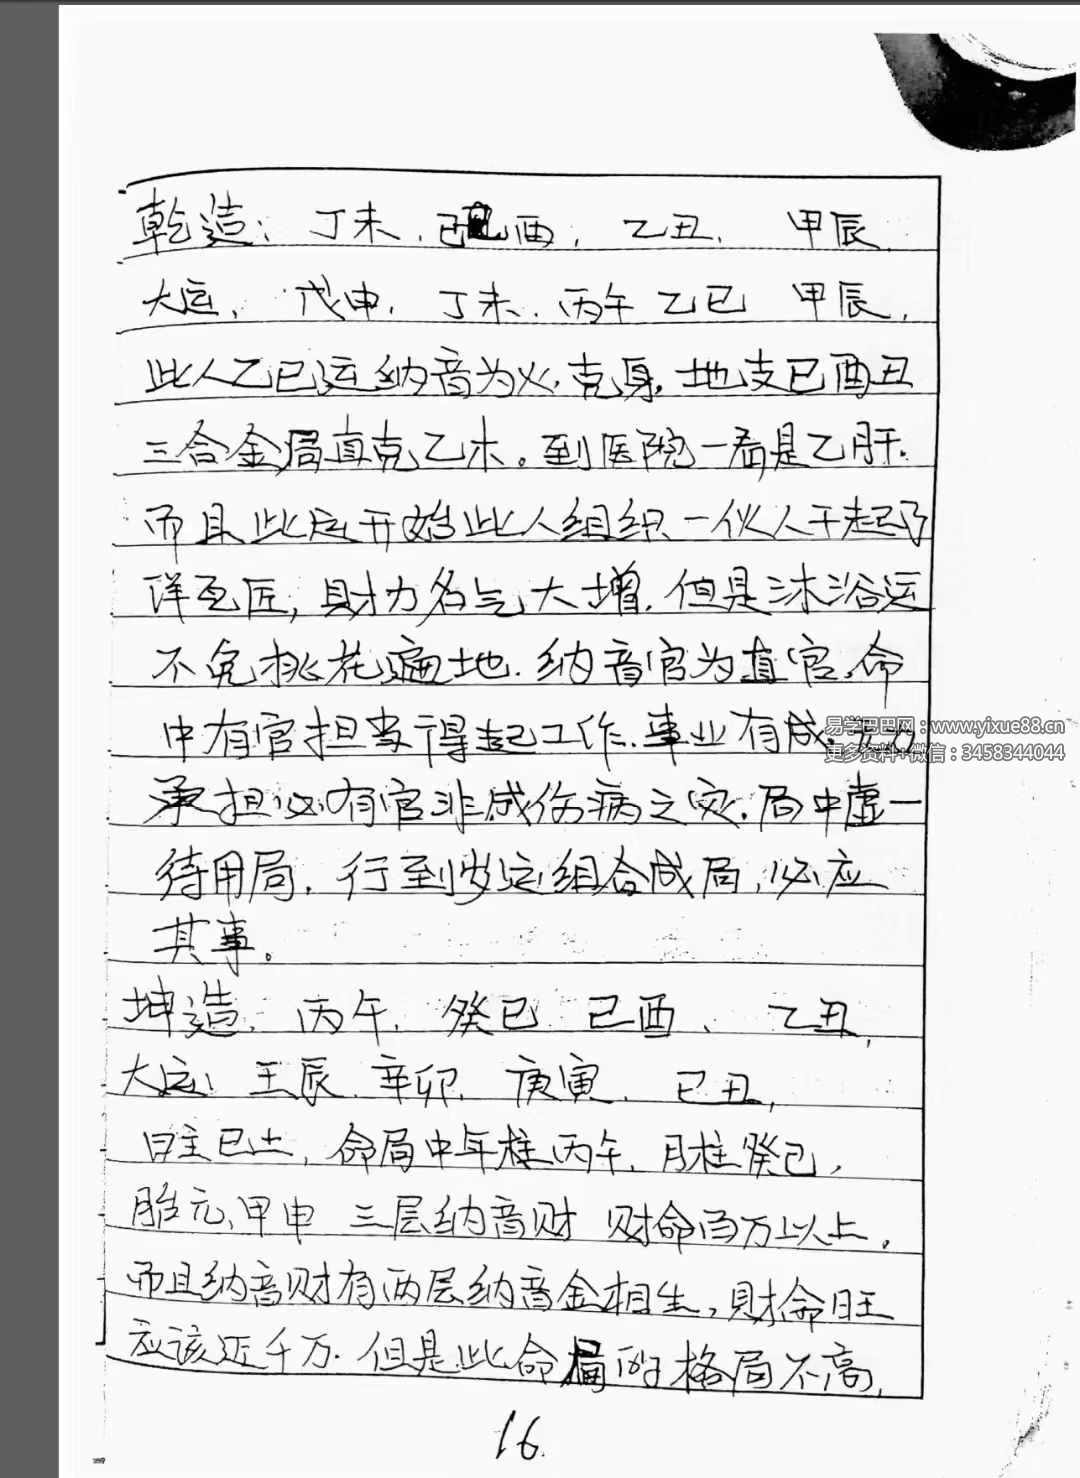 乾造：丁未．己酉．乙丑．甲辰．
大运．戊申．丁未．丙午 乙巳 甲辰．
此人乙巳运纳音为火．克身．地支巳酉丑
三合金局直克乙木。到医院一看是乙肝．
而且此运开始此人组织一伙人干起了
泥瓦匠，财力名气大增．但是沐浴运
不免桃花遍地．纳音官为真官．命
中有官担当得起工作．事业有成．
易学巴巴网：www.yixue88.cn
更多资料+微信：3458344044
承担必有官非或伤病之灾．局中虚一
待用局．行到岁运组合成局，必应
其事。
坤造．丙午．癸巳 己酉．乙丑，
大运：壬辰．辛卯．庚寅．己丑，
日主己土，命局中年柱丙午．月柱癸巳，
胎元、甲申 三层纳音财 财命百万以上。
而且纳音财有两层纳音金相生，财命旺
应该近千万．但是此命局的格局不高，
16.